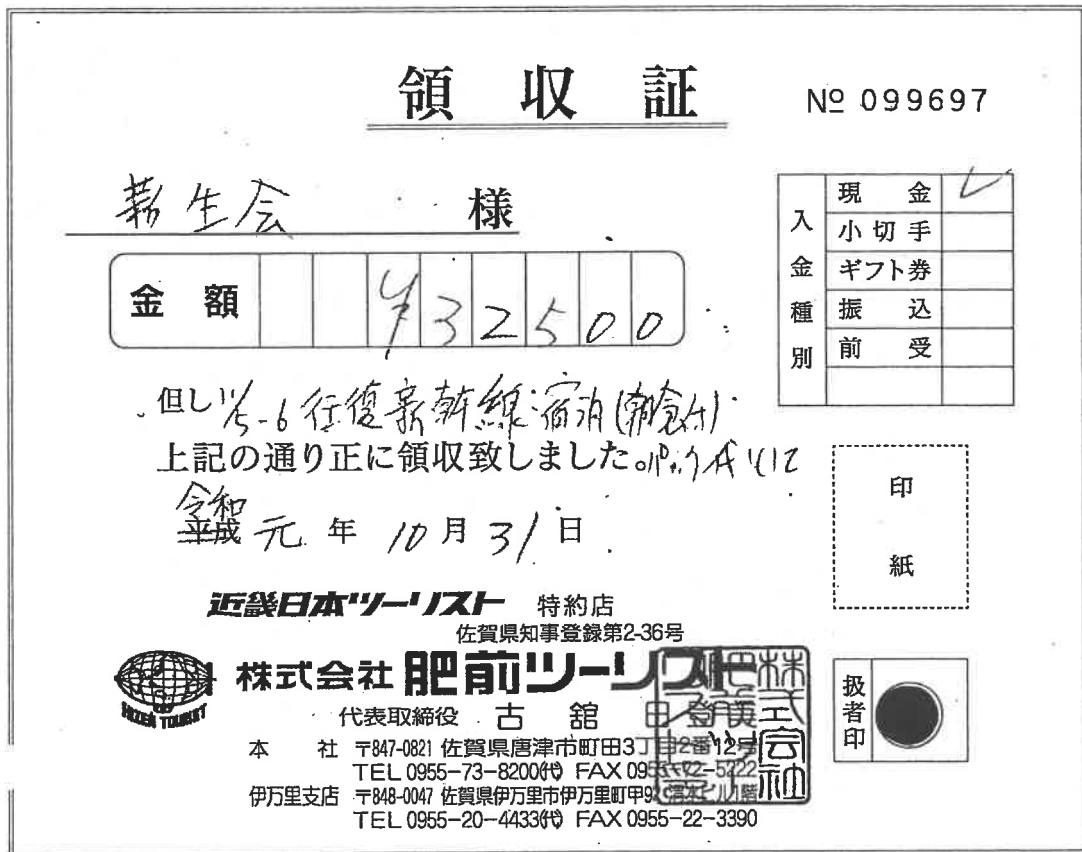 領収証
№ 099697
新生会 様
金額 ¥32500
入金種別
現金 レ
小切手
ギフト券
振込
前受
但し 11/5-6 往復新幹線・宿泊(朝食付)
上記の通り正に領収致しました。パック代として
令和
平成 元年 10月 31日
印紙
近畿日本ツーリスト 特約店
佐賀県知事登録第2-36号
HIZEN TOURIST
株式会社 肥前ツーリスト
代表取締役 古舘
扱者印
本社 〒847-0821 佐賀県唐津市町田3丁目2番12号
TEL 0955-73-8200(代) FAX 0955-72-5222
伊万里支店 〒848-0047 佐賀県伊万里市伊万里町甲
TEL 0955-20-4433(代) FAX 0955-22-3390